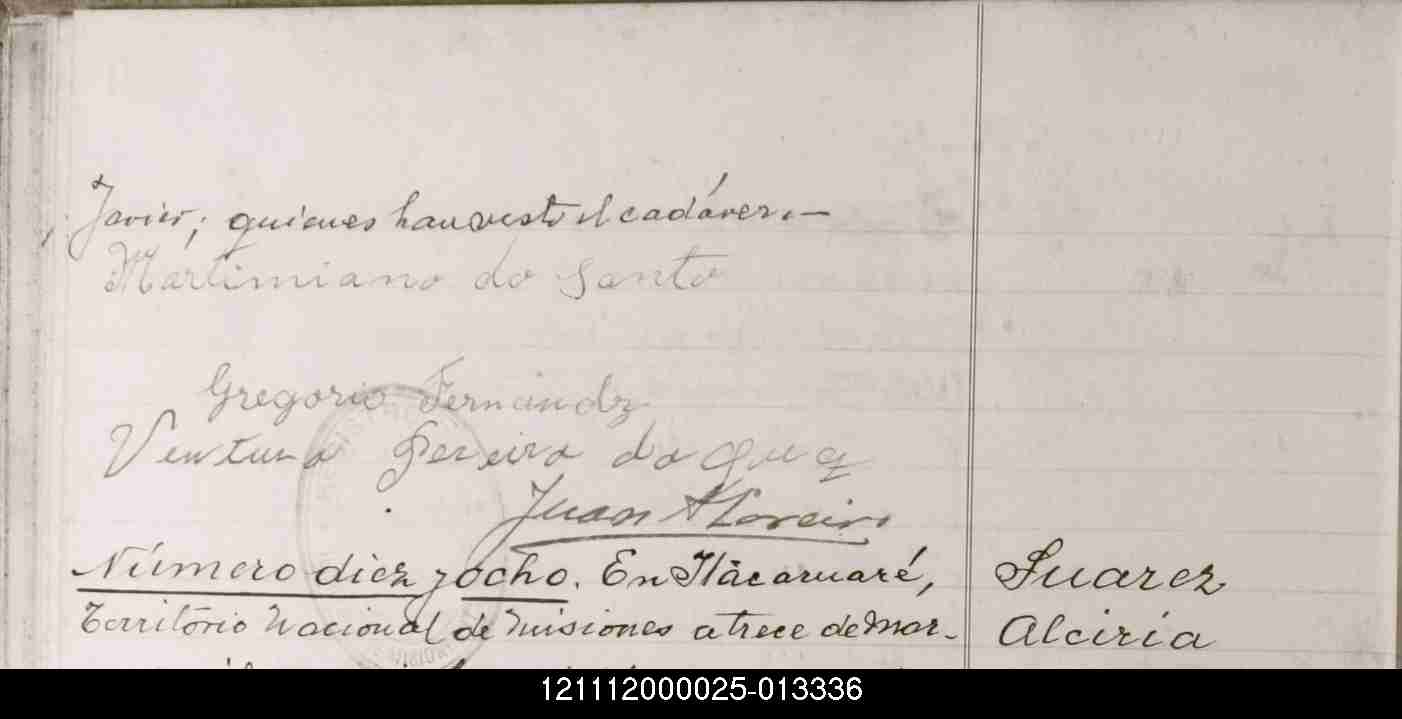 Javier; quienes han visto el cadáver.—
Martimiano do Santo
Gregorio Fernandz
Ventura Pereira da
Juan A Loreiro
Número diez y ocho. En Itacaruaré,
Territorio Nacional de Misiones a trece de Mar-
Suarez
Alciria
121112000025-013336